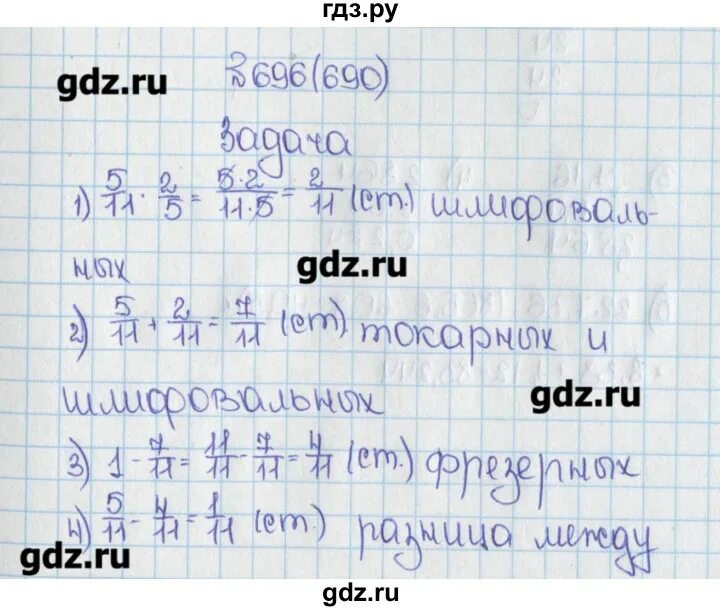 гдз.ру
gdz.ru
№ 696(690)
Задача
1) 5/11 · 2/5 = 5·2/11·5 = 2/11 (ст.) шлифоваль-
ных
gdz.ru
2) 5/11 + 2/11 = 7/11 (ст) токарных и
шлифовальных
gdz.ru
3) 1 - 7/11 = 11/11 - 7/11 = 4/11 (ст.) фрезерных
4) 5/11 - 4/11 = 1/11 (ст.) разница между
gdz.ru
gdz.ru